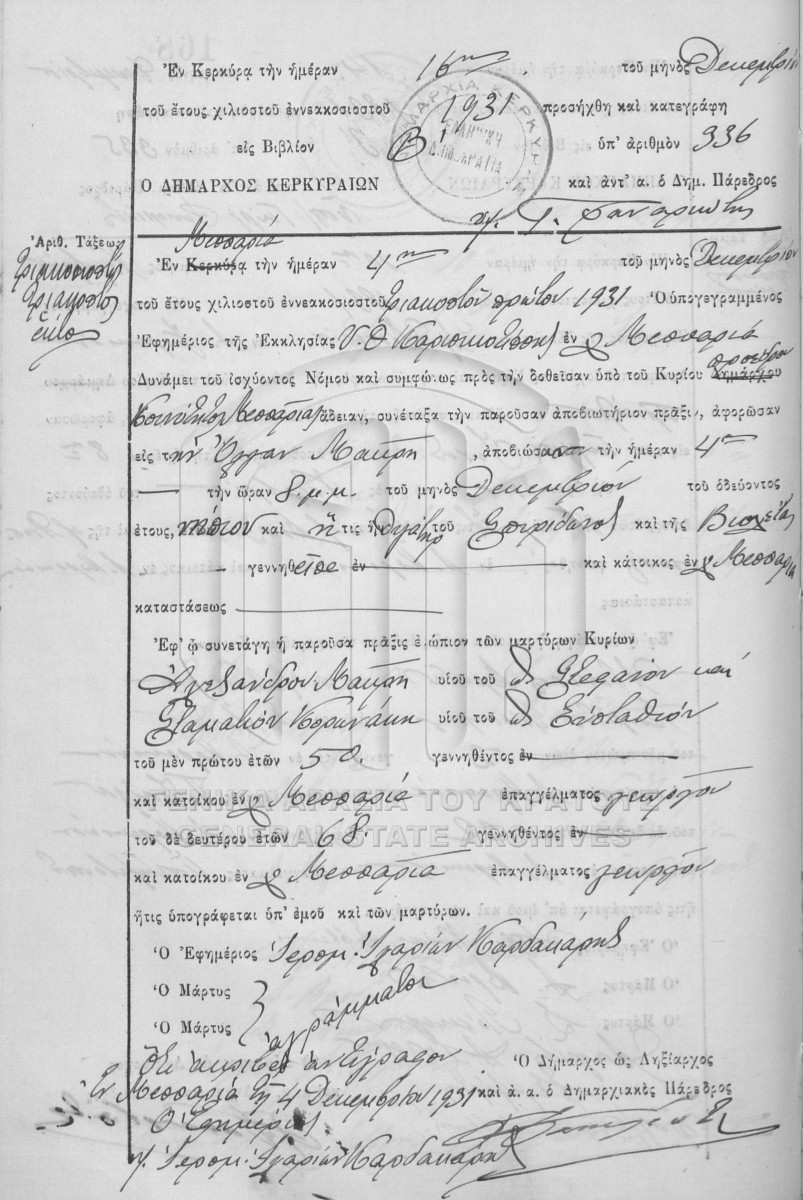 Ἐν Κερκύρᾳ τὴν ἡμέραν 16ην τοῦ μηνὸς Δεκεμβρίου
τοῦ ἔτους χιλιοστοῦ ἐννεακοσιοστοῦ 1931 προσήχθη καὶ κατεγράφη
εἰς Βιβλίον Β' ὑπ' ἀριθμὸν 336
Ο ΔΗΜΑΡΧΟΣ ΚΕΡΚΥΡΑΙΩΝ καὶ ἀντ' α. ὁ Δημ. Πάρεδρος
ΔΗΜΑΡΧΙΑ ΚΕΡΚΥΡΑΙΩΝ
ΕΛΛΗΝΙΚΗ
ΔΗΜΟΚΡΑΤΙΑ
Ἀριθ. Τάξεως
τριακοσιοστὸν
τριακοστὸν
ἕκτον
Μεσσαριᾷ
Ἐν Κερκύρᾳ τὴν ἡμέραν 4ην τοῦ μηνὸς Δεκεμβρίου
τοῦ ἔτους χιλιοστοῦ ἐννεακοσιοστοῦ τριακοστοῦ πρώτου 1931 Ὁ ὑπογεγραμμένος
Ἐφημέριος τῆς Ἐκκλησίας Υ. Θ. ἐν χ Μεσσαριᾷ
προέδρου
Δυνάμει τοῦ ἰσχύοντος Νόμου καὶ συμφώνως πρὸς τὴν δοθεῖσαν ὑπὸ τοῦ Κυρίου Δημάρχου
Κοινότητος Μεσσαριᾶς ἄδειαν, συνέταξα τὴν παροῦσαν ἀποβιωτήριον πρᾶξιν, ἀφορῶσαν
εἰς τὴν Ὄλγαν Μακρῆ, ἀποβιώσασαν τὴν ἡμέραν 4ην
τὴν ὥραν 8 μ.μ. τοῦ μηνὸς Δεκεμβρίου τοῦ ὁδεύοντος
ἔτους, νήπιον καὶ ἥτις ἦ θυγάτηρ τοῦ Σπυρίδωνος καὶ τῆς
γεννηθεῖσα ἐν καὶ κάτοικος ἐν χ Μεσσαριᾷ
καταστάσεως
Ἐφ' ᾧ συνετάγη ἡ παροῦσα πρᾶξις ἐνώπιον τῶν μαρτύρων Κυρίων
Ἀλεξάνδρου Μακρῆ υἱοῦ τοῦ Στεφάνου καὶ
Σταματίου Κορωνάκη υἱοῦ τοῦ Εὐσταθίου
τοῦ μὲν πρώτου ἐτῶν 50 γεννηθέντος ἐν
καὶ κατοίκου ἐν χ Μεσσαριᾷ ἐπαγγέλματος γεωργοῦ
τοῦ δὲ δευτέρου ἐτῶν 68 γεννηθέντος ἐν
καὶ κατοίκου ἐν χ Μεσσαριᾷ ἐπαγγέλματος γεωργοῦ
ἥτις ὑπογράφεται ὑπ' ἐμοῦ καὶ τῶν μαρτύρων.
Ὁ Ἐφημέριος Ἱερομ. Ἱλαρίων Καρδακάρης
Ὁ Μάρτυς
Ὁ Μάρτυς ἀγράμματοι
Ὅτι ἀκριβὲς ἀντίγραφον Ὁ Δήμαρχος ὡς Ληξίαρχος
Ἐν Μεσσαριᾷ τῇ 4 Δεκεμβρίου 1931 καὶ ἀ. α. ὁ Δημαρχιακὸς Πάρεδρος
Ὁ Ἐφημέριος
Ἱερομ. Ἱλαρίων Καρδακάρης
ΓΕΝΙΚΑ ΑΡΧΕΙΑ ΤΟΥ ΚΡΑΤΟΥΣ
GENERAL STATE ARCHIVES